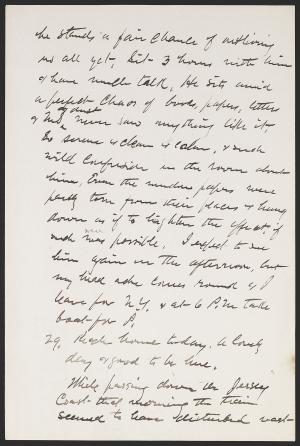 he stands a fair chance of outliving
us all yet. Sit 3 hours with him
& have much talk. He sits amid
a perfect chaos of books, papers, letters
& I never saw anything like it.
So serene & clean & calm, & such
wild confusion in the room about
him, Even the window papers were
partly torn from their places & hung
down as if to heighten the effect if
such was possible. I expect to see
him again in the afternoon, but
my head ache comes round & I
leave for N.Y. & at 6 P.M. take
boat for P.
29. Reach home to-day. A lovely
day & good to be here.
While passing down the Jersey
Coast that morning the train
seemed to have disturbed vast